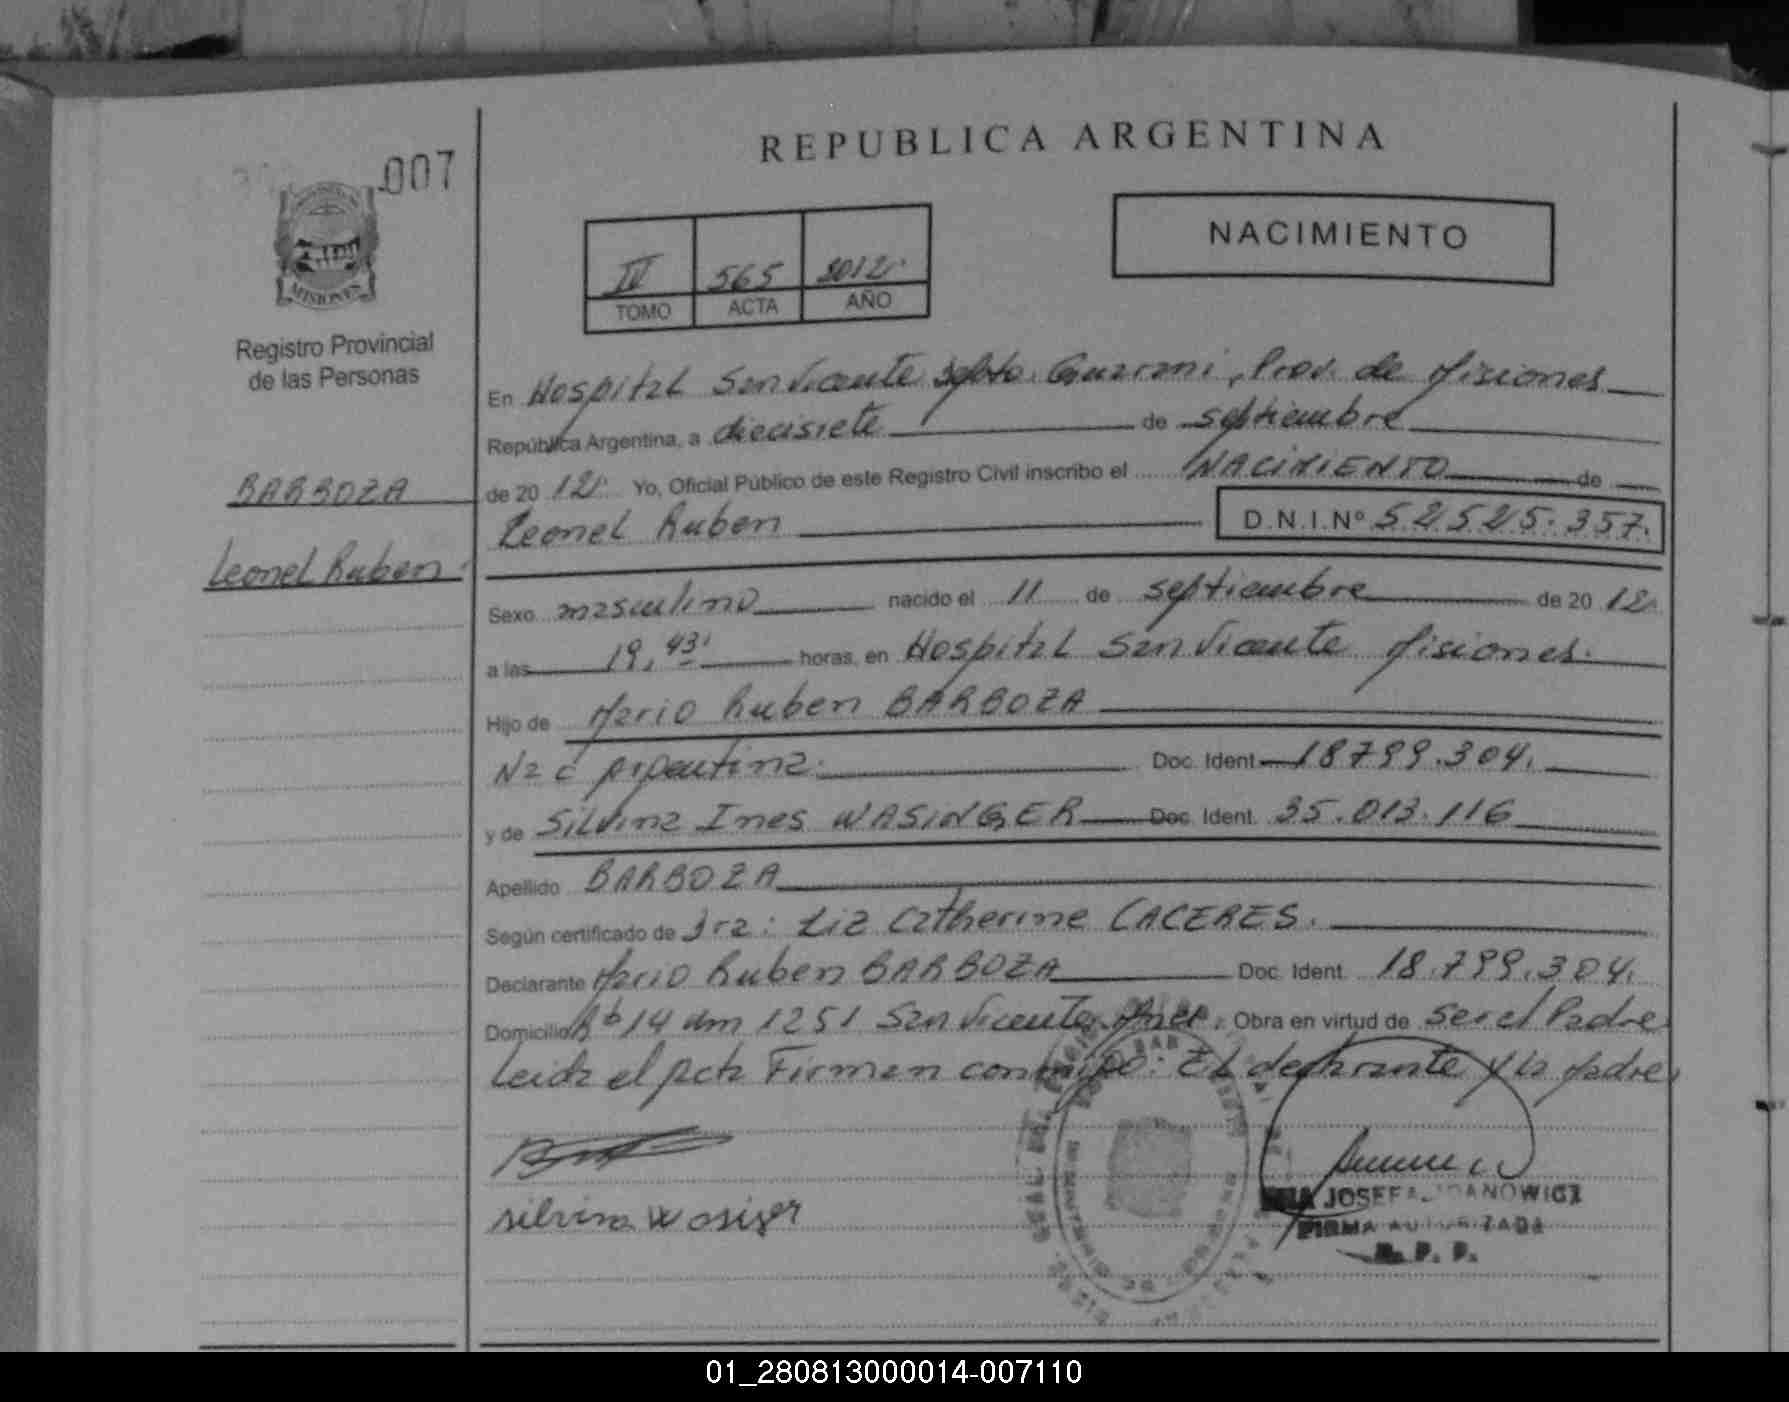 REPUBLICA ARGENTINA
007
NACIMIENTO
IV 565 2012
TOMO ACTA AÑO
MISIONES
Registro Provincial
de las Personas
En Hospital San Vicente Dpto. Guarani, Prov. de Misiones
República Argentina, a diecisiete de septiembre
BARBOZA
de 20 12 Yo, Oficial Público de este Registro Civil inscribo el NACIMIENTO de
Leonel Ruben D.N.I.Nº 52.525.357.
Leonel Ruben
Sexo masculino nacido el 11 de septiembre de 20 12
a las 19,43 horas, en Hospital San Vicente Misiones.
Hijo de Mario Ruben BARBOZA
Nac Argentina. Doc. Ident 18.799.304.
y de Silvina Ines WASINGER Doc. Ident. 35.013.116
Apellido BARBOZA
Según certificado de Dra: Liz Catherine CACERES.
Declarante Mario Ruben BARBOZA Doc. Ident. 18.799.304.
Domicilio Rº 14 km 1251 San Vicente Mnes. Obra en virtud de ser el Padre
Leida el Acta Firman conmigo: El declarante y la Madre
silvina Wasiger
JOSEFA
FIRMA AUTORIZADA
R. P. P.
01_280813000014-007110